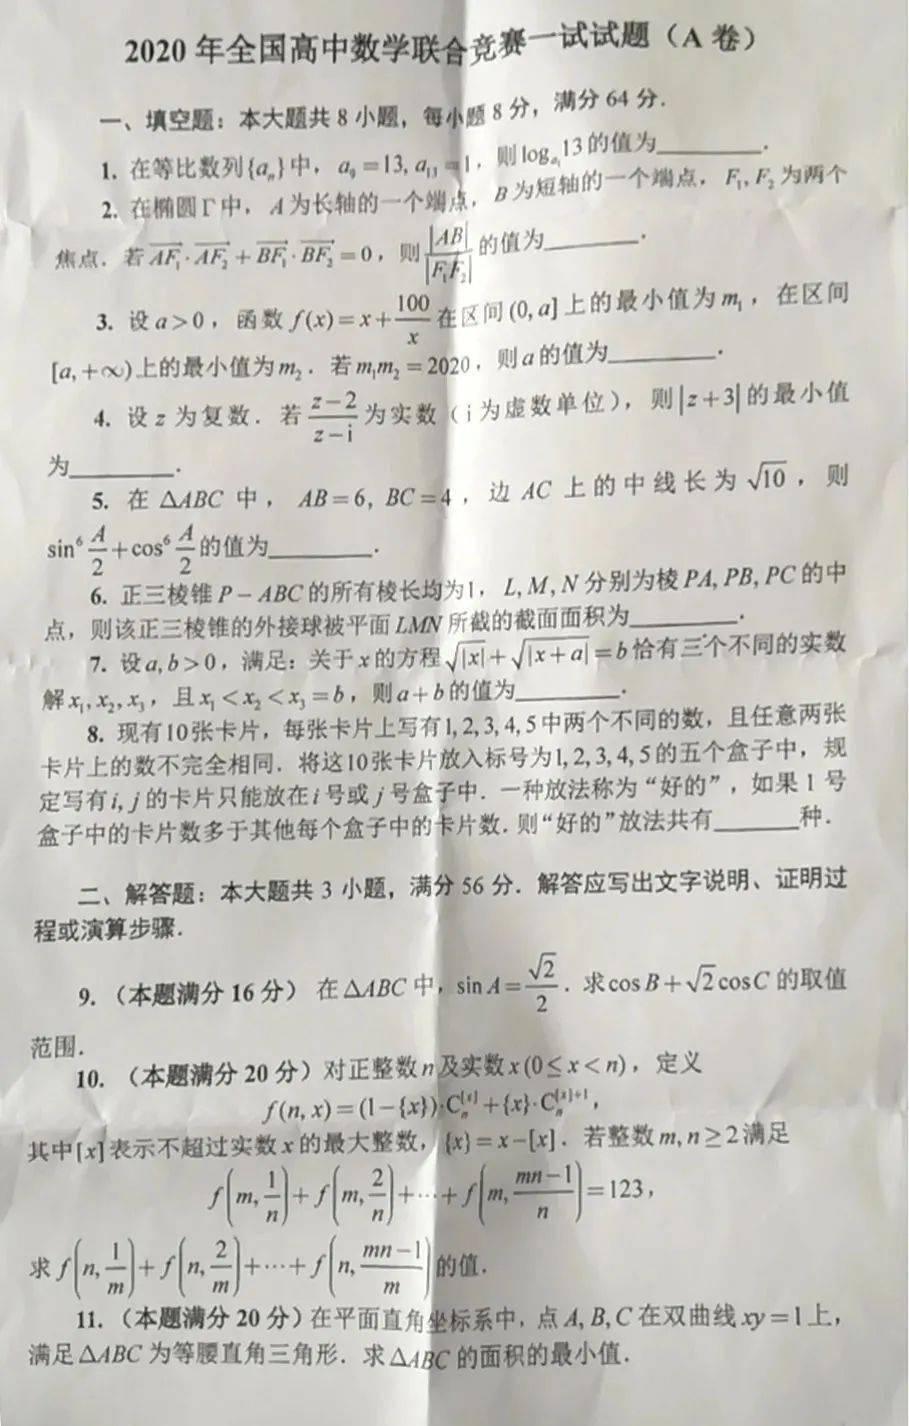 2020 年全国高中数学联合竞赛一试试题（A 卷）
一、填空题：本大题共 8 小题，每小题 8 分，满分 64 分．
1. 在等比数列{aₙ}中，a₉=13, a₁₃=1，则 log_{a₁}13 的值为________．
2. 在椭圆Γ中，A 为长轴的一个端点，B 为短轴的一个端点，F₁, F₂ 为两个
焦点．若 \overrightarrow{AF₁}·\overrightarrow{AF₂}+\overrightarrow{BF₁}·\overrightarrow{BF₂}=0，则 |AB|/|F₁F₂| 的值为________．
3. 设 a>0，函数 f(x)=x+100/x 在区间(0, a]上的最小值为 m₁，在区间
[a,+∞)上的最小值为 m₂．若 m₁m₂=2020，则 a 的值为________．
4. 设 z 为复数．若 (z−2)/(z−i) 为实数（i 为虚数单位），则|z+3|的最小值
为________．
5. 在 ΔABC 中，AB=6, BC=4，边 AC 上的中线长为 √10，则
sin⁶(A/2)+cos⁶(A/2) 的值为________．
6. 正三棱锥 P−ABC 的所有棱长均为1，L, M, N 分别为棱 PA, PB, PC 的中
点，则该正三棱锥的外接球被平面 LMN 所截的截面面积为________．
7. 设 a, b>0，满足：关于 x 的方程 √|x|+√|x+a|=b 恰有三个不同的实数
解 x₁, x₂, x₃，且 x₁<x₂<x₃=b，则 a+b 的值为________．
8. 现有10张卡片，每张卡片上写有1, 2, 3, 4, 5中两个不同的数，且任意两张
卡片上的数不完全相同．将这10张卡片放入标号为1, 2, 3, 4, 5的五个盒子中，规
定写有 i, j 的卡片只能放在 i 号或 j 号盒子中．一种放法称为“好的”，如果 1 号
盒子中的卡片数多于其他每个盒子中的卡片数．则“好的”放法共有________种．
二、解答题：本大题共 3 小题，满分 56 分．解答应写出文字说明、证明过
程或演算步骤．
9. （本题满分 16 分） 在 ΔABC 中，sin A=√2/2．求 cos B+√2 cos C 的取值
范围．
10. （本题满分 20 分）对正整数 n 及实数 x (0≤x<n)，定义
f(n, x)=(1−{x})·Cₙ^{[x]}+{x}·Cₙ^{[x]+1}，
其中[x]表示不超过实数 x 的最大整数，{x}=x−[x]．若整数 m, n≥2 满足
f(m, 1/n)+f(m, 2/n)+⋯+f(m, (mn−1)/n)=123，
求 f(n, 1/m)+f(n, 2/m)+⋯+f(n, (mn−1)/m) 的值．
11. （本题满分 20 分）在平面直角坐标系中，点 A, B, C 在双曲线 xy=1上，
满足 ΔABC 为等腰直角三角形．求 ΔABC 的面积的最小值．